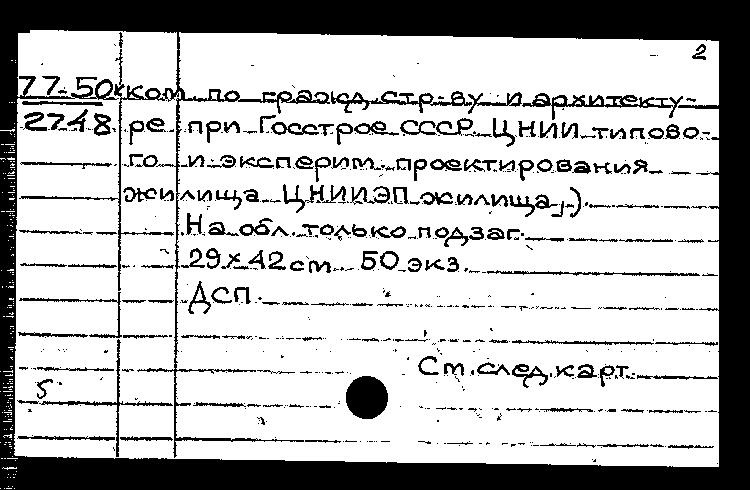 2
77-50к ком. по гражд. стр-ву и архитекту-
2748 ре при Госстрое СССР. ЦНИИ типово-
го и эксперим. проектирования
жилища ЦНИИЭП жилища).
На обл. только подзаг.
29×42 см 50 экз.
ДСП.
См. след. карт.
5